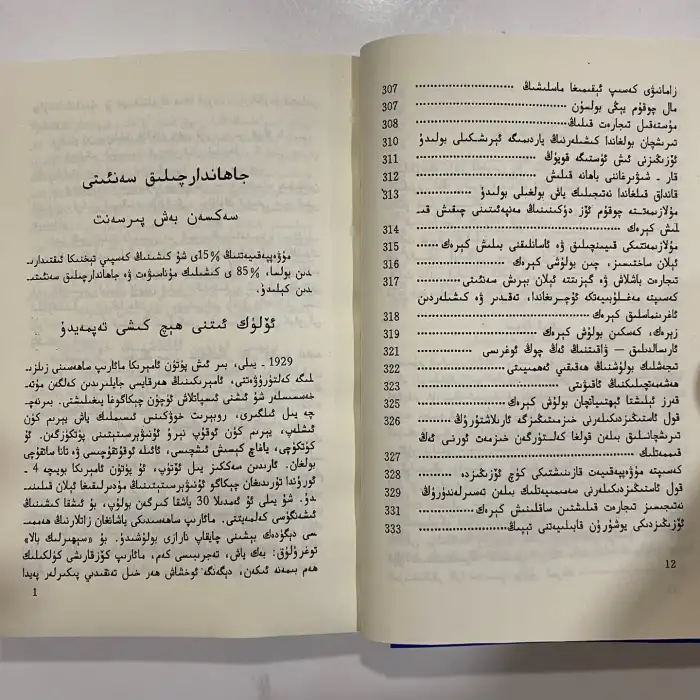 زامانىۋى كەسىپ ئېقىمىغا ماسلىشىڭ ........ 307
مال چوقۇم يېڭى بولسۇن ........ 307
مۇستەقىل تىجارەت قىلىڭ ........ 308
تىرىشچان بولغاندا كىشىلەرنىڭ ياردىمىگە ئېرىشكىلى بولىدۇ 310
ئۆزىڭىزنى ئىش ئۈستىگە قويۇڭ ........ 311
قار - شىۋىرغاننى باھانە قىلىش ........ 312
قانداق قىلغاندا نەتىجىلىك ياش بولغىلى بولىدۇ ........ 313
مۇلازىمەتتە چوقۇم ئۆز دۇكىنىنىڭ مەنپەئىتىنى چىقىش قى-
لىش كېرەك ........ 314
مۇلازىمەتتىكى قىيىنچىلىق ۋە ئاسانلىقنى بىلىش كېرەك ...... 315
ئېلان ساختىسىز، چىن بولۇشى كېرەك ........ 316
تىجارەت باشلاش ۋە گېزىتتە ئېلان بېرىش سەنئىتى ........ 317
كەسىپتە مەغلۇبىيەتكە ئۇچرىغاندا، تەقدىر ۋە كىشىلەردىن
ئاغرىنماسلىق كېرەك ........ 318
زېرەك، كەسكىن بولۇش كېرەك ........ 319
ئارسالدىلىق — ۋاقىتنىڭ ئەڭ چوڭ ئوغرىسى ........ 321
تىجەشلىك بولۇشنىڭ ھەقىقىي ئەھمىيىتى ........ 322
ھەشەمەتچىلىكنىڭ ئاقىۋىتى ........ 323
قەرز ئېلىشتا ئېھتىياتچان بولۇش كېرەك ........ 325
قول ئاستىڭىزدىكىلەرنى خىزمىتىڭىزگە ئارىلاشتۇرۇڭ ........ 326
تىرىشچانلىق بىلەن قولغا كەلتۈرگەن خىزمەت ئورنى ئەڭ
قىممەتلىك ........ 327
كەسىپتە مۇۋەپپەقىيەت قازىنىشتىكى كۈچ ئۆزىڭىزدە ........ 328
قول ئاستىڭىزدىكىلەرنى سەمىمىيەتلىك بىلەن تەسىرلەندۈرۈڭ 329
نەتىجىسىز تىجارەت قىلىشتىن ساقلىنىش كېرەك ........ 331
ئۆزىڭىزدىكى يوشۇرۇن قابىلىيەتنى تېپىڭ ........ 333
12
جاھاندارچىلىق سەنئىتى
سەكسەن بەش پىرسەنت
مۇۋەپپەقىيەتنىڭ 15% ى شۇ كىشىنىڭ كەسپىي تېخنىكا ئىقتىدارى-
دىن بولسا، 85% ى كىشىلىك مۇناسىۋەت ۋە جاھاندارچىلىق سەنئىتى-
دىن كېلىدۇ.
ئۆلۈك ئىتنى ھېچ كىشى تەپمەيدۇ
1929 - يىلى، بىر ئىش پۈتۈن ئامېرىكا مائارىپ ساھەسىنى زىلزى-
لىگە كەلتۈرۈۋەتتى، ئامېرىكىنىڭ ھەرقايسى جايلىرىدىن كەلگەن مۇتە-
خەسسىسلەر شۇ ئىشنى ئىسپاتلاش ئۈچۈن چىكاگوغا يىغىلىشتى. بىرنەچ-
چە يىل ئىلگىرى، روبېرت خوۋكىنس ئىسىملىك ياش يېرىم كۈن
ئىشلەپ، يېرىم كۈن ئوقۇپ نېرۇ ئۇنىۋېرسىتېتىنى پۈتكۈزگەن. ئۇ
كۈتكۈچى، ياغاچ كېسىش ئىشچىسى، ئائىلە ئوقۇتقۇچىسى ۋە تانا ساتقۇچى
بولغان. ئارىدىن سەككىز يىل ئۆتۈپ، ئۇ پۈتۈن ئامېرىكا بويىچە 4 -
ئورۇندا تۇرىدىغان چىكاگو ئۇنىۋېرسىتېتىنىڭ مۇدىرلىقىغا ئېلان قىلىنىـ
دۇ. شۇ يىلى ئۇ ئەمدىلا 30 ياشقا كىرگەن بولۇپ، بۇ ئىشقا كىشىنىڭ
ئىشەنگۈسى كەلمەيتتى. مائارىپ ساھەسىدىكى ياشانغان زاتلارنىڭ ھەممى-
سى دېگۈدەك بېشىنى چايقاپ نارازى بولۇشىدۇ. بۇ «سېھىرلىك بالا»
توغرۇلۇق: بەك ياش، تەجرىبىسى كەم، مائارىپ كۆزقارىشى كۈلكىلىك
ھەم بىمەنە ئىكەن، دېگەنگە ئوخشاش ھەر خىل تەنقىدىي پىكىرلەر پەيدا
1